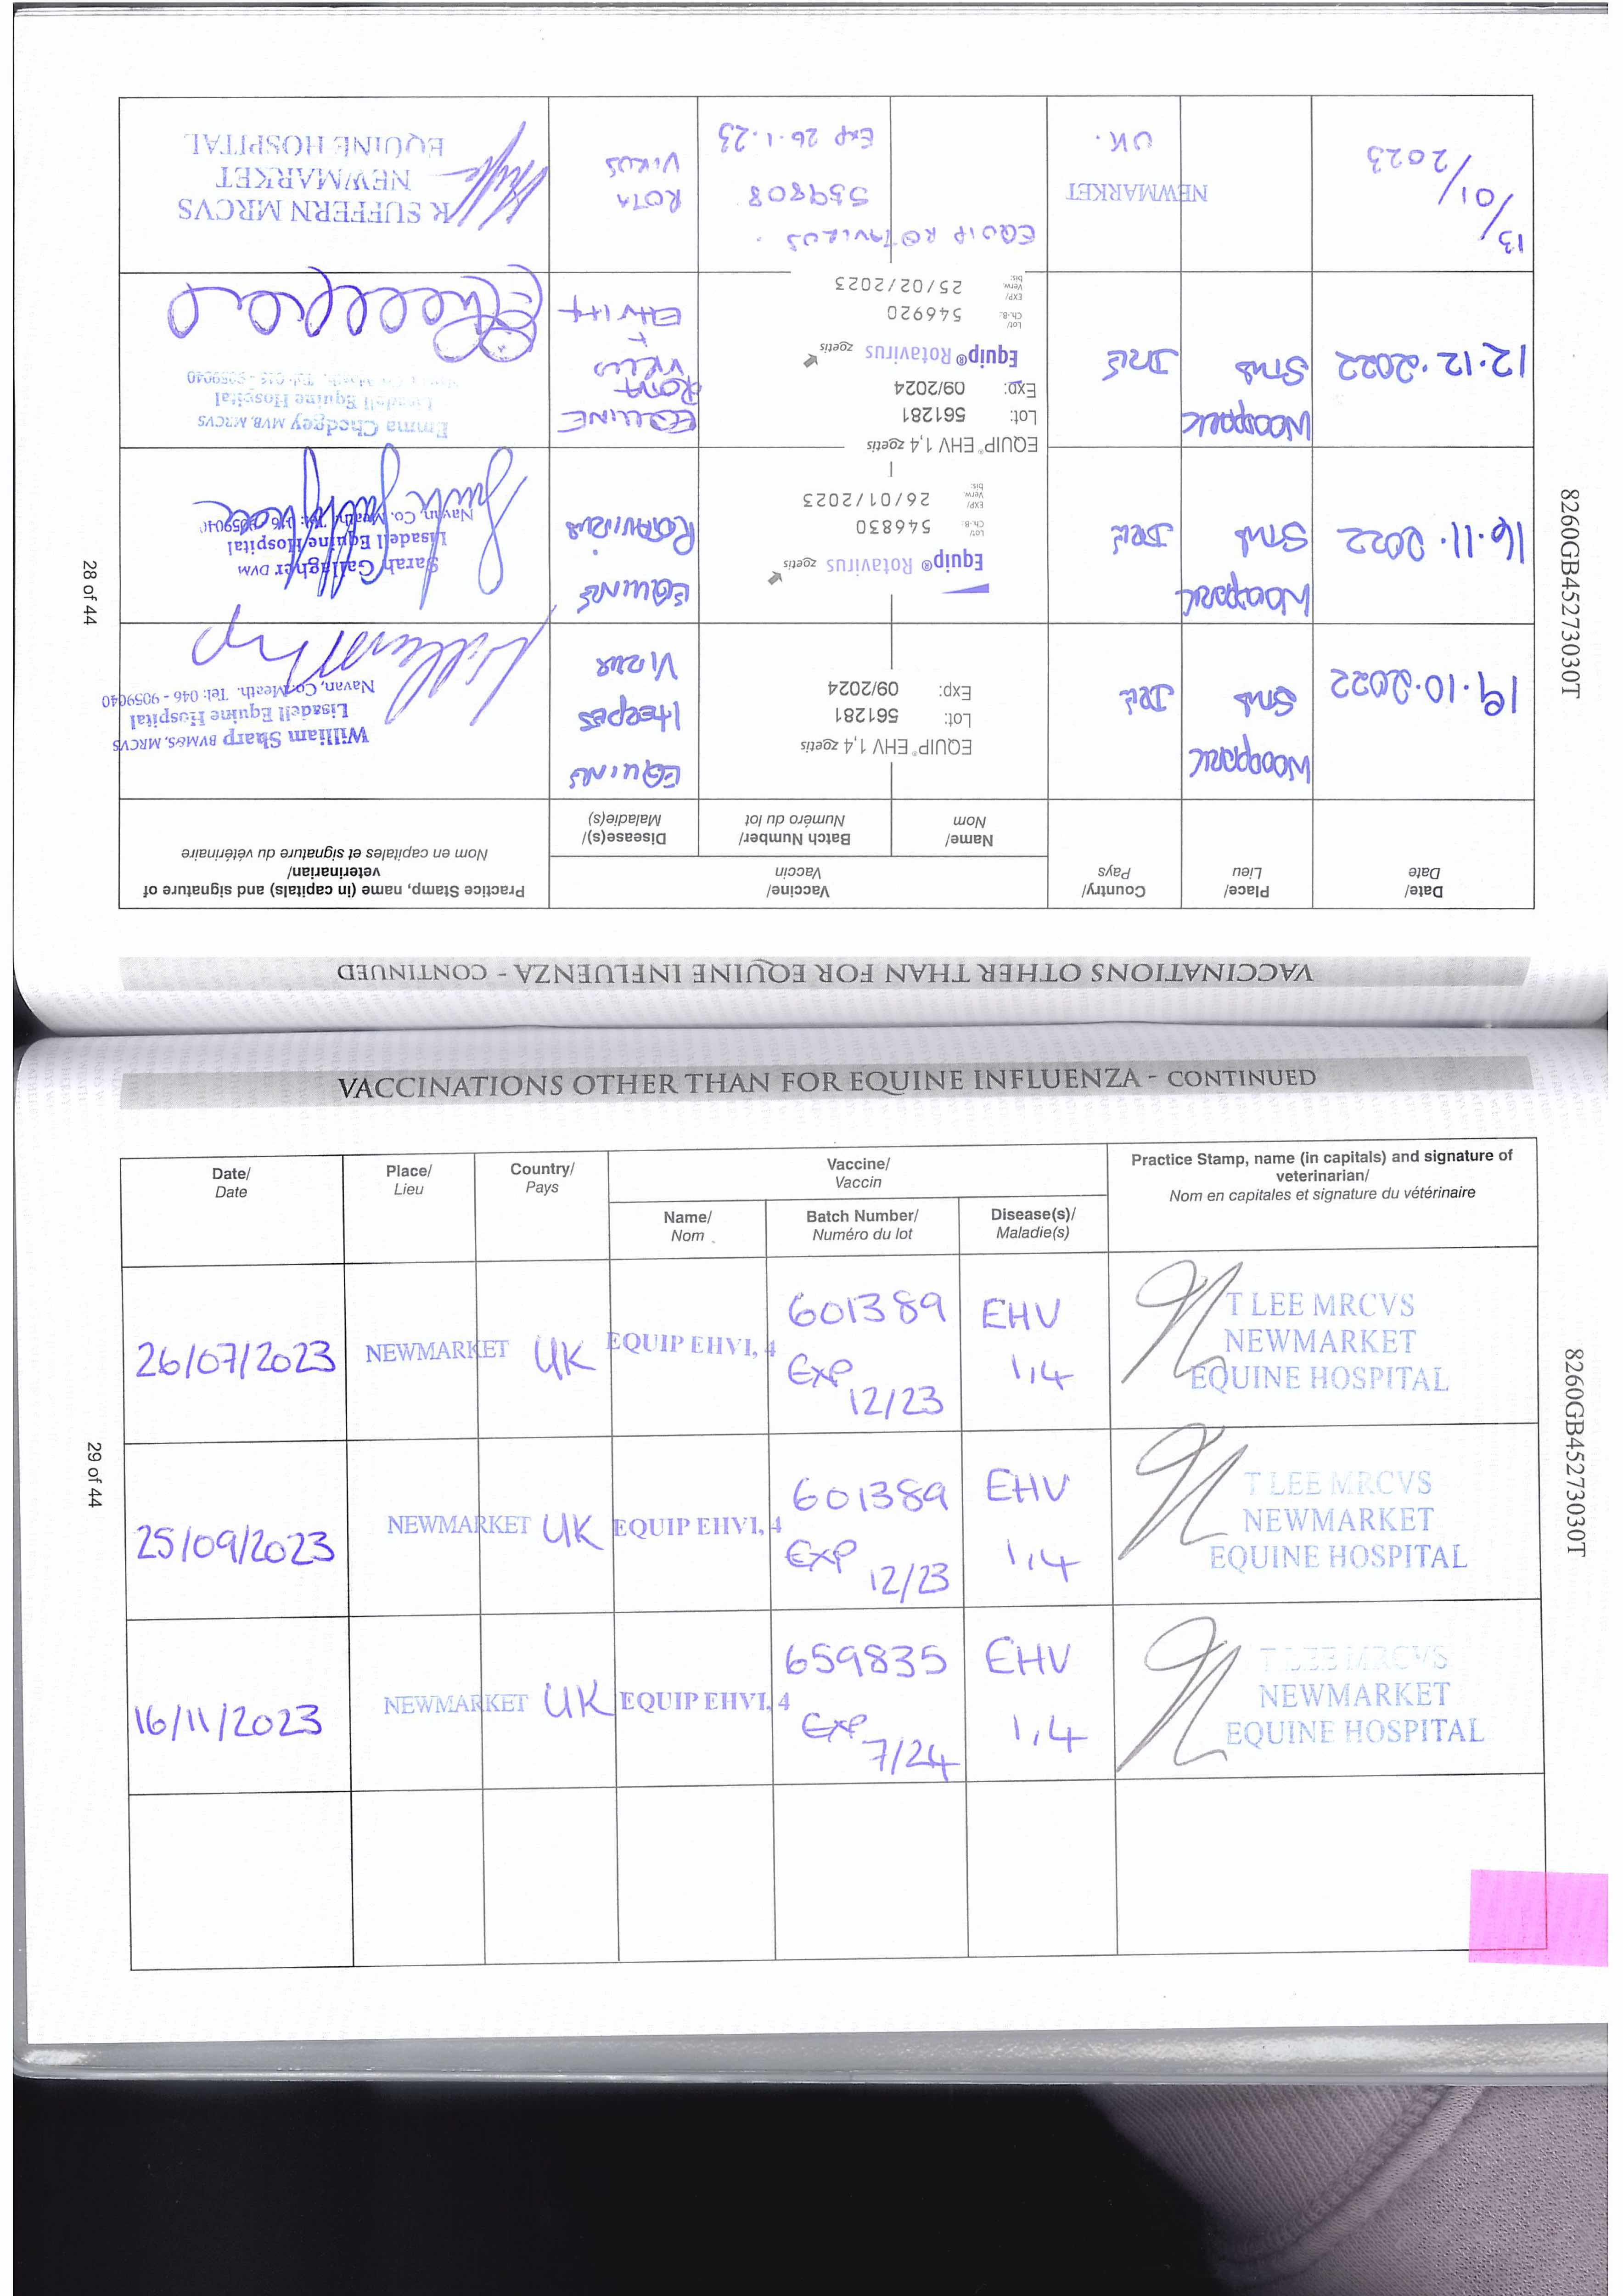 VACCINATIONS OTHER THAN FOR EQUINE INFLUENZA - CONTINUED
Date/
Date
Place/
Lieu
Country/
Pays
Vaccine/
Vaccin
Name/
Nom
Batch Number/
Numéro du lot
Disease(s)/
Maladie(s)
Practice Stamp, name (in capitals) and signature of
veterinarian/
Nom en capitales et signature du vétérinaire
19.10.2022
WOODPARK
STUD
IRE
EQUIP® EHV 1,4 zoetis
Lot: 561281
Exp: 09/2024
EQUINE
HERPES
William Sharp BVM&S, MRCVS
Lisadell Equine Hospital
Navan, Co. Meath. Tel: 046 - 9059040
16.11.2022
WOODPARK
STUD
IRE
Equip® Rotavirus zoetis
Lot/
Ch.-B.: 546830
EXP/
Verw.
bis: 26/01/2023
EQUINE
ROTAVIRUS
Sarah Gallagher DVM
Lisadell Equine Hospital
Navan, Co. Meath. Tel: 046 - 9059040
12.12.2022
WOODPARK
STUD
IRE
EQUIP® EHV 1,4 zoetis
Lot: 561281
Exp: 09/2024
Equip® Rotavirus zoetis
Lot/
Ch.-B.: 546920
EXP/
Verw.
bis: 25/02/2023
EQUINE
ROTA
VIRUS
+
Emma Chedgey MVB, MRCVS
Lisadell Equine Hospital
Navan, Co. Meath. Tel: 046 - 9059040
13/01/2023
NEWMARKET
UK.
EQUIP ROTAVIRUS.
559808
Exp 26.1.23
ROTA
VIRUS
K SUFFERN MRCVS
NEWMARKET
EQUINE HOSPITAL
28 of 44
8260GB45273030T
VACCINATIONS OTHER THAN FOR EQUINE INFLUENZA - CONTINUED
Date/
Date
Place/
Lieu
Country/
Pays
Vaccine/
Vaccin
Name/
Nom
Batch Number/
Numéro du lot
Disease(s)/
Maladie(s)
Practice Stamp, name (in capitals) and signature of
veterinarian/
Nom en capitales et signature du vétérinaire
26/07/2023
NEWMARKET
UK
EQUIP EHV1, 4
601389
Exp
12/23
EHV
1,4
T LEE MRCVS
NEWMARKET
EQUINE HOSPITAL
25/09/2023
NEWMARKET
UK
EQUIP EHV1, 4
601389
Exp
12/23
EHV
1,4
T LEE MRCVS
NEWMARKET
EQUINE HOSPITAL
16/11/2023
NEWMARKET
UK
EQUIP EHV1, 4
659835
Exp
7/24
EHV
1,4
T LEE MRCVS
NEWMARKET
EQUINE HOSPITAL
29 of 44
8260GB45273030T